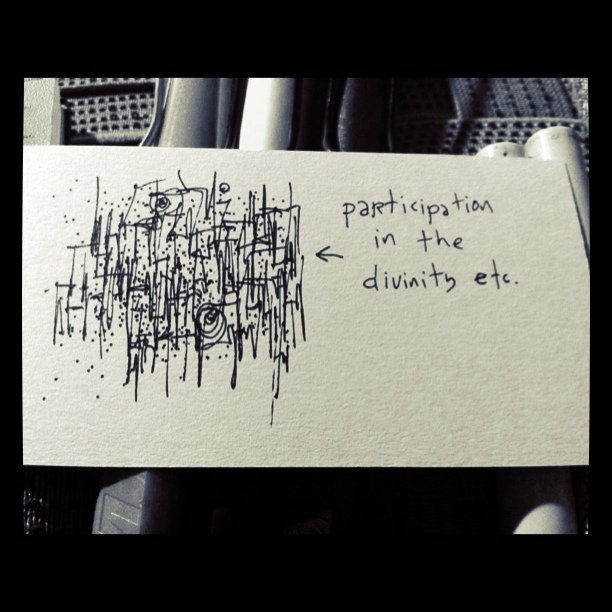 participation
in the
divinity etc.